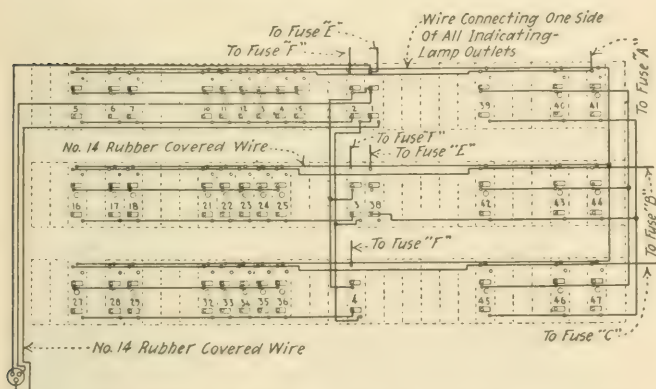 To Fuse "E"
To Fuse "F"
Wire Connecting One Side
Of All Indicating-
Lamp Outlets
To Fuse "A"
5 6 7 10 11 12 3 4 5 2 39 40 41
No. 14 Rubber Covered Wire
To Fuse "F"
To Fuse "E"
16 17 18 21 22 23 24 25 3 38 42 43 44
To Fuse "B"
To Fuse "F"
27 28 29 32 33 34 35 36 4 45 46 47
To Fuse "C"
No. 14 Rubber Covered Wire